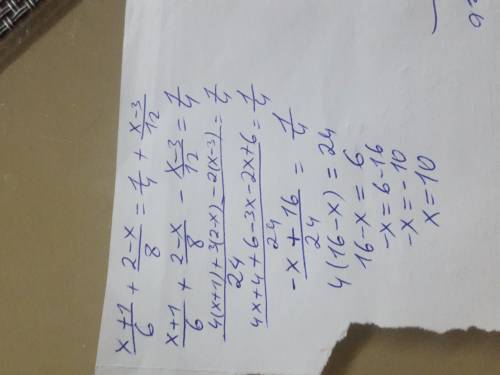 (x+1)/6 + (2-x)/8 = 1/4 + (x-3)/12
(x+1)/6 + (2-x)/8 - (x-3)/12 = 1/4
(4(x+1)+3(2-x)-2(x-3))/24 = 1/4
(4x+4+6-3x-2x+6)/24 = 1/4
(-x+16)/24 = 1/4
4(16-x) = 24
16-x = 6
-x = 6-16
-x = -10
x = 10